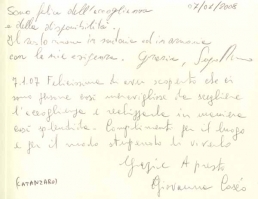 07/01/2008
Sono felice dell'accoglienza
e della disponibilità
Il solo in sintonia ed in armonia
con le mie esigenze. Grazie,
7.1.07 Felicissima di aver scoperto che ci
sono persone così meravigliose da scegliere
l'accoglienza e realizzarla in maniera
così splendida. Complimenti per il luogo
e per il modo stupendo di viverlo
Grazie A presto
(CATANZARO) Giovanna